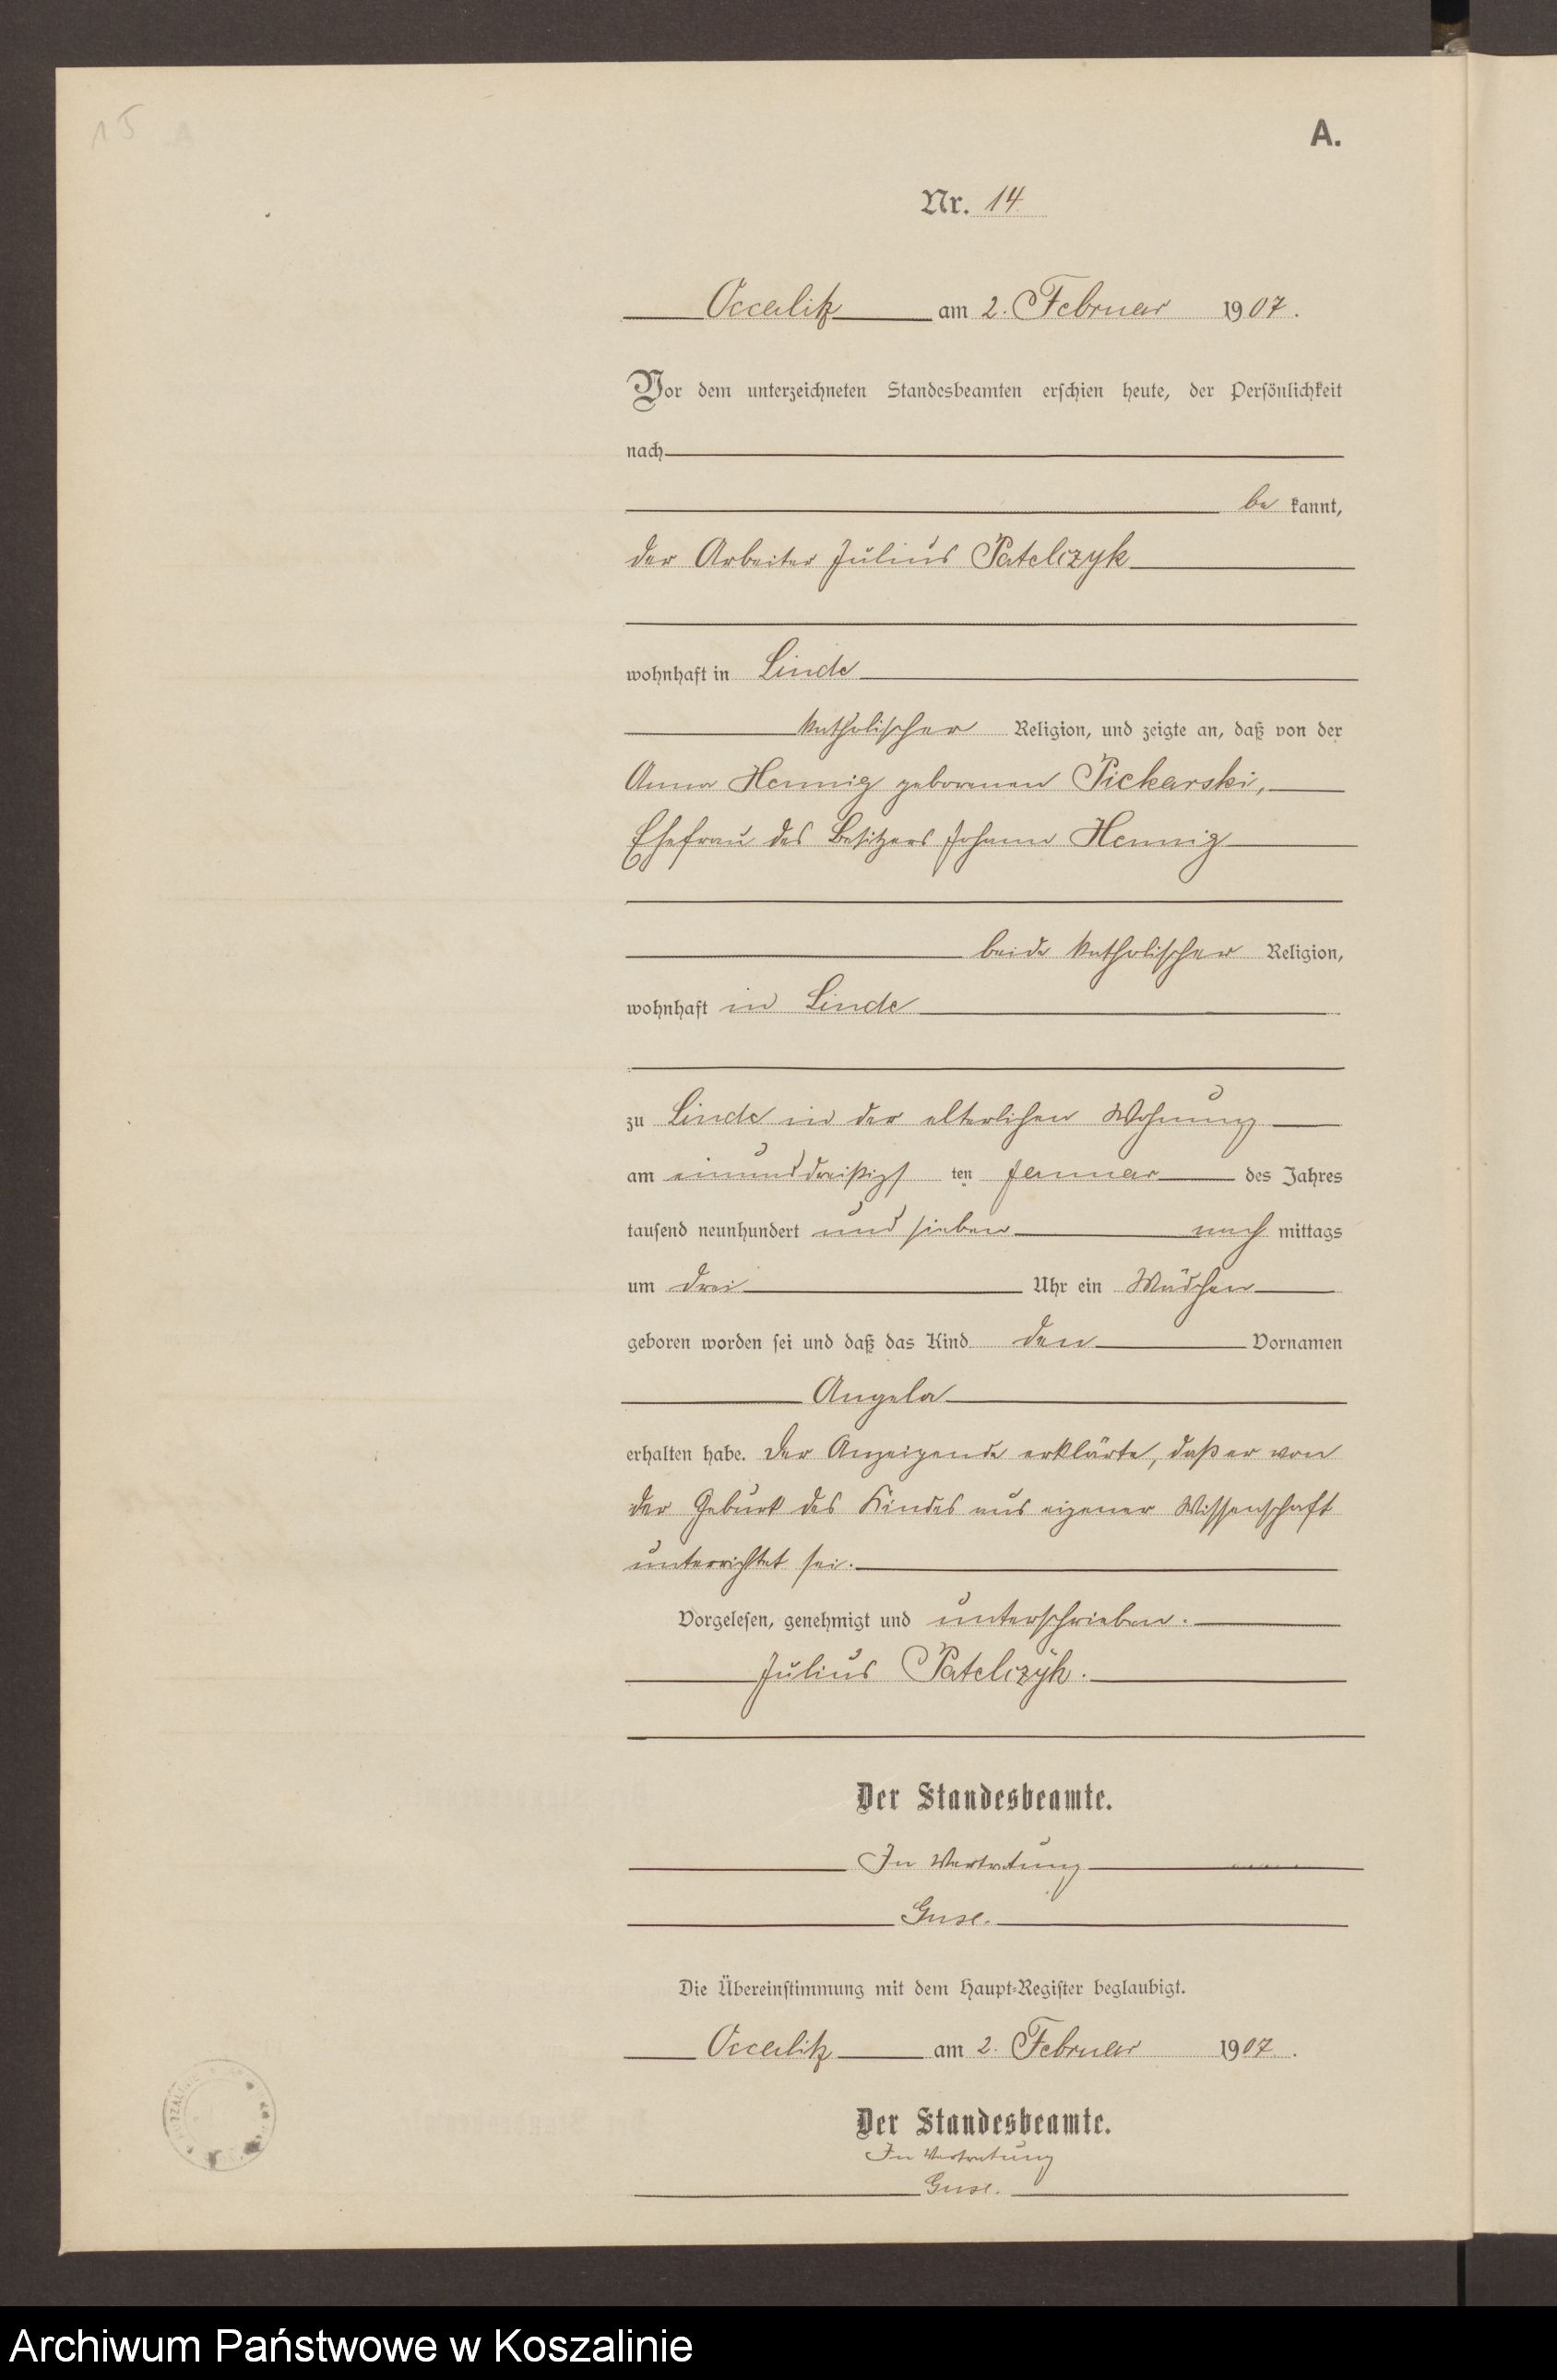 15
A.
Nr. 14
Occalitz am 2. Februar 1907.
Vor dem unterzeichneten Standesbeamten erschien heute, der Persönlichkeit
nach
be kannt,
der Arbeiter Julius Patelczyk
wohnhaft in Linde
katholischer Religion, und zeigte an, daß von der
Anna Hennig geborenen Piekarski,
Ehefrau des Besitzers Johann Hennig
beide katholischer Religion,
wohnhaft in Linde
zu Linde in der elterlichen Wohnung
am einunddreißigs ten Januar des Jahres
tausend neunhundert und sieben nach mittags
um drei Uhr ein Mädchen
geboren worden sei und daß das Kind den Vornamen
Angela
erhalten habe. Der Anzeigende erklärte, daß er von
der Geburt des Kindes aus eigener Wissenschaft
unterrichtet sei.
Vorgelesen, genehmigt und unterschrieben.
Julius Patelczyk.
Der Standesbeamte.
In Vertretung
Guse.
Die Übereinstimmung mit dem Haupt-Register beglaubigt.
Occalitz am 2. Februar 1907.
Der Standesbeamte.
In Vertretung
Guse.
Archiwum Państwowe w Koszalinie